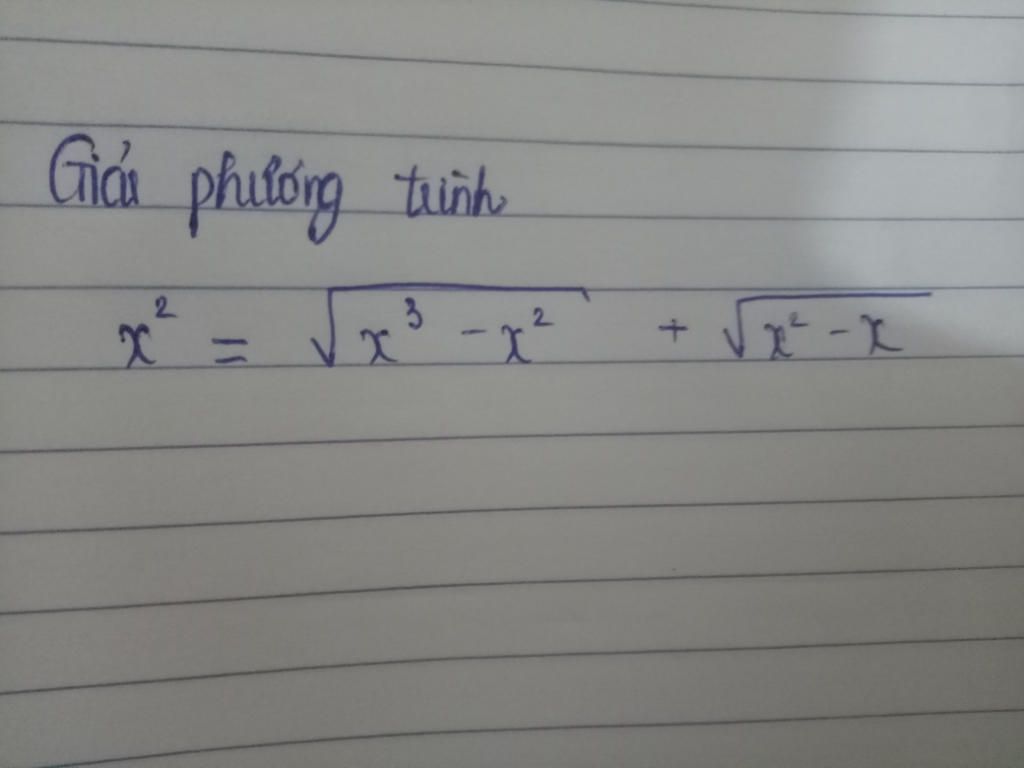 Giải phương trình
x² = √(x³ - x²) + √(x² - x)